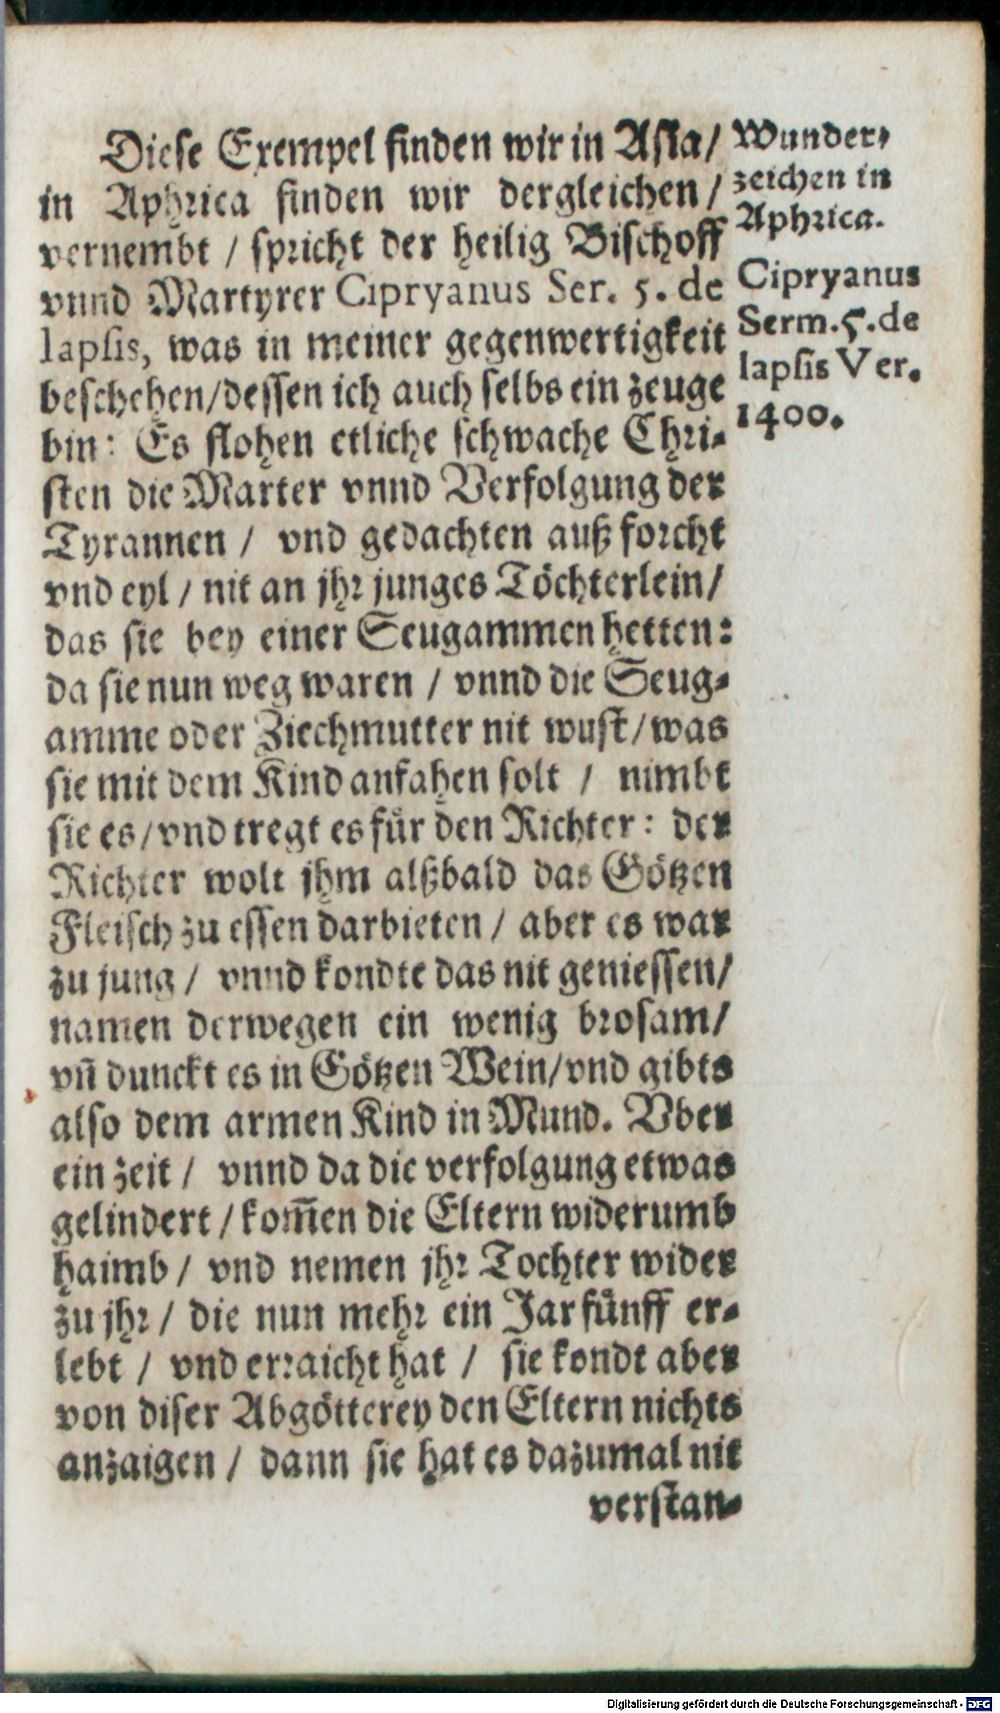 Diese Exempel finden wir in Asia/
in Aphrica finden wir dergleichen/
vernembt / spricht der heilig Bischoff
vnnd Martyrer Cipryanus Ser. 5. de
lapsis, was in meiner gegenwertigkeit
beschehen/dessen ich auch selbs ein zeuge
bin: Es flohen etliche schwache Chri-
sten die Marter vnnd Verfolgung der
Tyrannen / vnd gedachten auß forcht
vnd eyl / nit an jhr junges Töchterlein/
das sie bey einer Seugammen hetten:
da sie nun weg waren / vnnd die Seug-
amme oder Ziechmutter nit wust/was
sie mit dem Kind anfahen solt / nimbt
sie es/vnd tregt es für den Richter: der
Richter wolt jhm alßbald das Götzen
Fleisch zu essen darbieten / aber es war
zu jung / vnnd kondte das nit geniessen/
namen derwegen ein wenig brosam/
vñ dunckt es in Götzen Wein/vnd gibts
also dem armen Kind in Mund. Vber
ein zeit / vnnd da die verfolgung etwas
gelindert / kom̃en die Eltern widerumb
haimb / vnd nemen jhr Tochter wider
zu jhr / die nun mehr ein Jar fünff er-
lebt / vnd erraicht hat / sie kondt aber
von diser Abgötterey den Eltern nichts
anzaigen / dann sie hat es dazumal nit
verstan-
Wunder-
zeichen in
Aphrica.
Cipryanus
Serm.5.de
lapsis Ver.
1400.
Digitalisierung gefördert durch die Deutsche Forschungsgemeinschaft - DFG